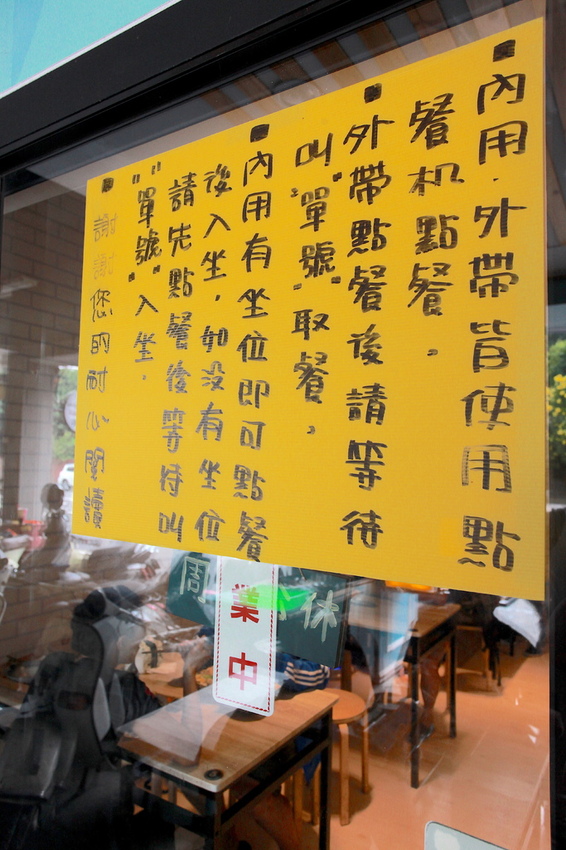 內用．外帶皆使用點
餐机點餐。
外帶點餐後請等待
叫"單號"取餐。
內用有坐位即可點餐
後入坐，如沒有坐位
請先點餐後等待叫
"單號"入坐．
謝謝您的耐心閱讀
業中
周
休